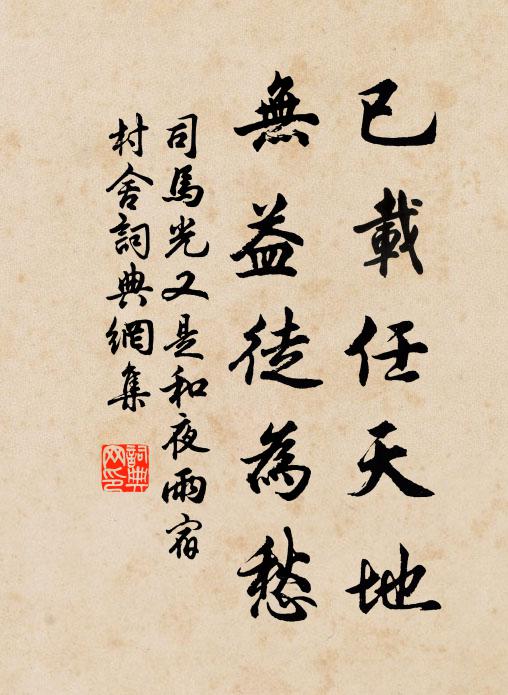 已載任天地
無益徒為愁
司馬光又是和夜雨宿
村舍詞典網集
詞典網印